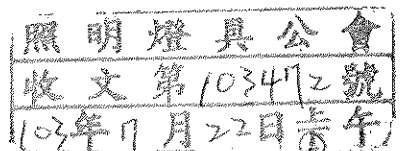 照明燈具公會
收文第103472號
103年7月22日午